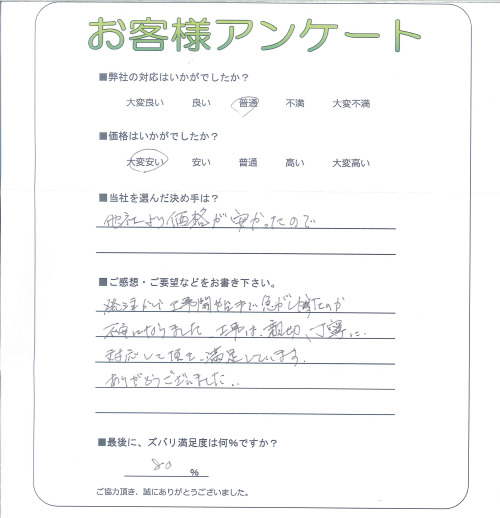 お客様アンケート
■弊社の対応はいかがでしたか?
大変良い 良い 普通 不満 大変不満
■価格はいかがでしたか?
大変安い 安い 普通 高い 大変高い
■当社を選んだ決め手は?
他社より価格が安かったので
■ご感想・ご要望などをお書き下さい。
工事 で
不安になりました 工事は、親切、丁寧に
対応して頂き、満足しています。
ありがとうございました..
■最後に、ズバリ満足度は何%ですか?
80 %
ご協力頂き、誠にありがとうございました。